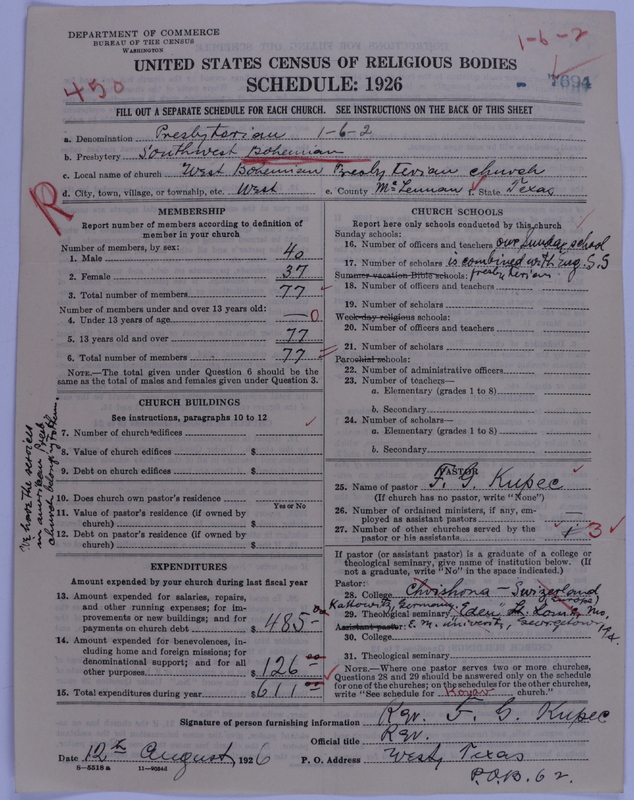 DEPARTMENT OF COMMERCE
BUREAU OF THE CENSUS
WASHINGTON
1-6-2
UNITED STATES CENSUS OF RELIGIOUS BODIES
SCHEDULE: 1926
450
7694
FILL OUT A SEPARATE SCHEDULE FOR EACH CHURCH. SEE INSTRUCTIONS ON THE BACK OF THIS SHEET
a. Denomination Presbyterian 1-6-2
b. Presbytery Southwest Bohemian
c. Local name of church West Bohemian Presbyterian church
d. City, town, village, or township, etc. West e. County McLennan f. State Texas
R
MEMBERSHIP
Report number of members according to definition of
member in your church
Number of members, by sex:
1. Male 40
2. Female 37
3. Total number of members 77
Number of members under and over 13 years old:
4. Under 13 years of age — 0
5. 13 years old and over 77
6. Total number of members 77
NOTE.—The total given under Question 6 should be the
same as the total of males and females given under Question 3.
CHURCH BUILDINGS
See instructions, paragraphs 10 to 12
7. Number of church edifices
8. Value of church edifices $
9. Debt on church edifices $
10. Does church own pastor's residence
Yes or No
11. Value of pastor's residence (if owned by
church) $
12. Debt on pastor's residence (if owned by
church) $
We have the services
in american Presb.
church belonging to them.
EXPENDITURES
Amount expended by your church during last fiscal year
13. Amount expended for salaries, repairs,
and other running expenses; for im-
provements or new buildings; and for
payments on church debt $ 485-
14. Amount expended for benevolences, in-
cluding home and foreign missions; for
denominational support; and for all
other purposes $ 126 00
15. Total expenditures during year $ 611 00
CHURCH SCHOOLS
Report here only schools conducted by this church
Sunday schools:
16. Number of officers and teachers our Sunday school
17. Number of scholars is combined with eng. S.S
Summer vacation Bible schools: presbyterian.
18. Number of officers and teachers
19. Number of scholars
Week-day religious schools:
20. Number of officers and teachers
21. Number of scholars
Parochial schools:
22. Number of administrative officers
23. Number of teachers—
a. Elementary (grades 1 to 8)
b. Secondary
24. Number of scholars—
a. Elementary (grades 1 to 8)
b. Secondary
PASTOR
25. Name of pastor F. G. Kupec
(If church has no pastor, write "None")
26. Number of ordained ministers, if any, em-
ployed as assistant pastors —
27. Number of other churches served by the
pastor or his assistants 3
If pastor (or assistant pastor) is a graduate of a college or
theological seminary, give name of institution below. (If
not a graduate, write "No" in the space indicated.)
Pastor:
28. College Chrishona — Swizerland
(Europa)
Kattowitz, Germany.
29. Theological seminary Eden St. Louis, Mo.
Assistant pastor: E. M. University, Georgetown,
30. College
31. Theological seminary
NOTE.—Where one pastor serves two or more churches,
Questions 28 and 29 should be answered only on the schedule
for one of the churches; on the schedules for the other churches,
write "See schedule for church."
Signature of person furnishing information Rev. F. G. Kupec
Official title Rev.
Date 12th August 1926 P. O. Address West, Texas
8—5518 a 11—9054d
P.O.B. 62.